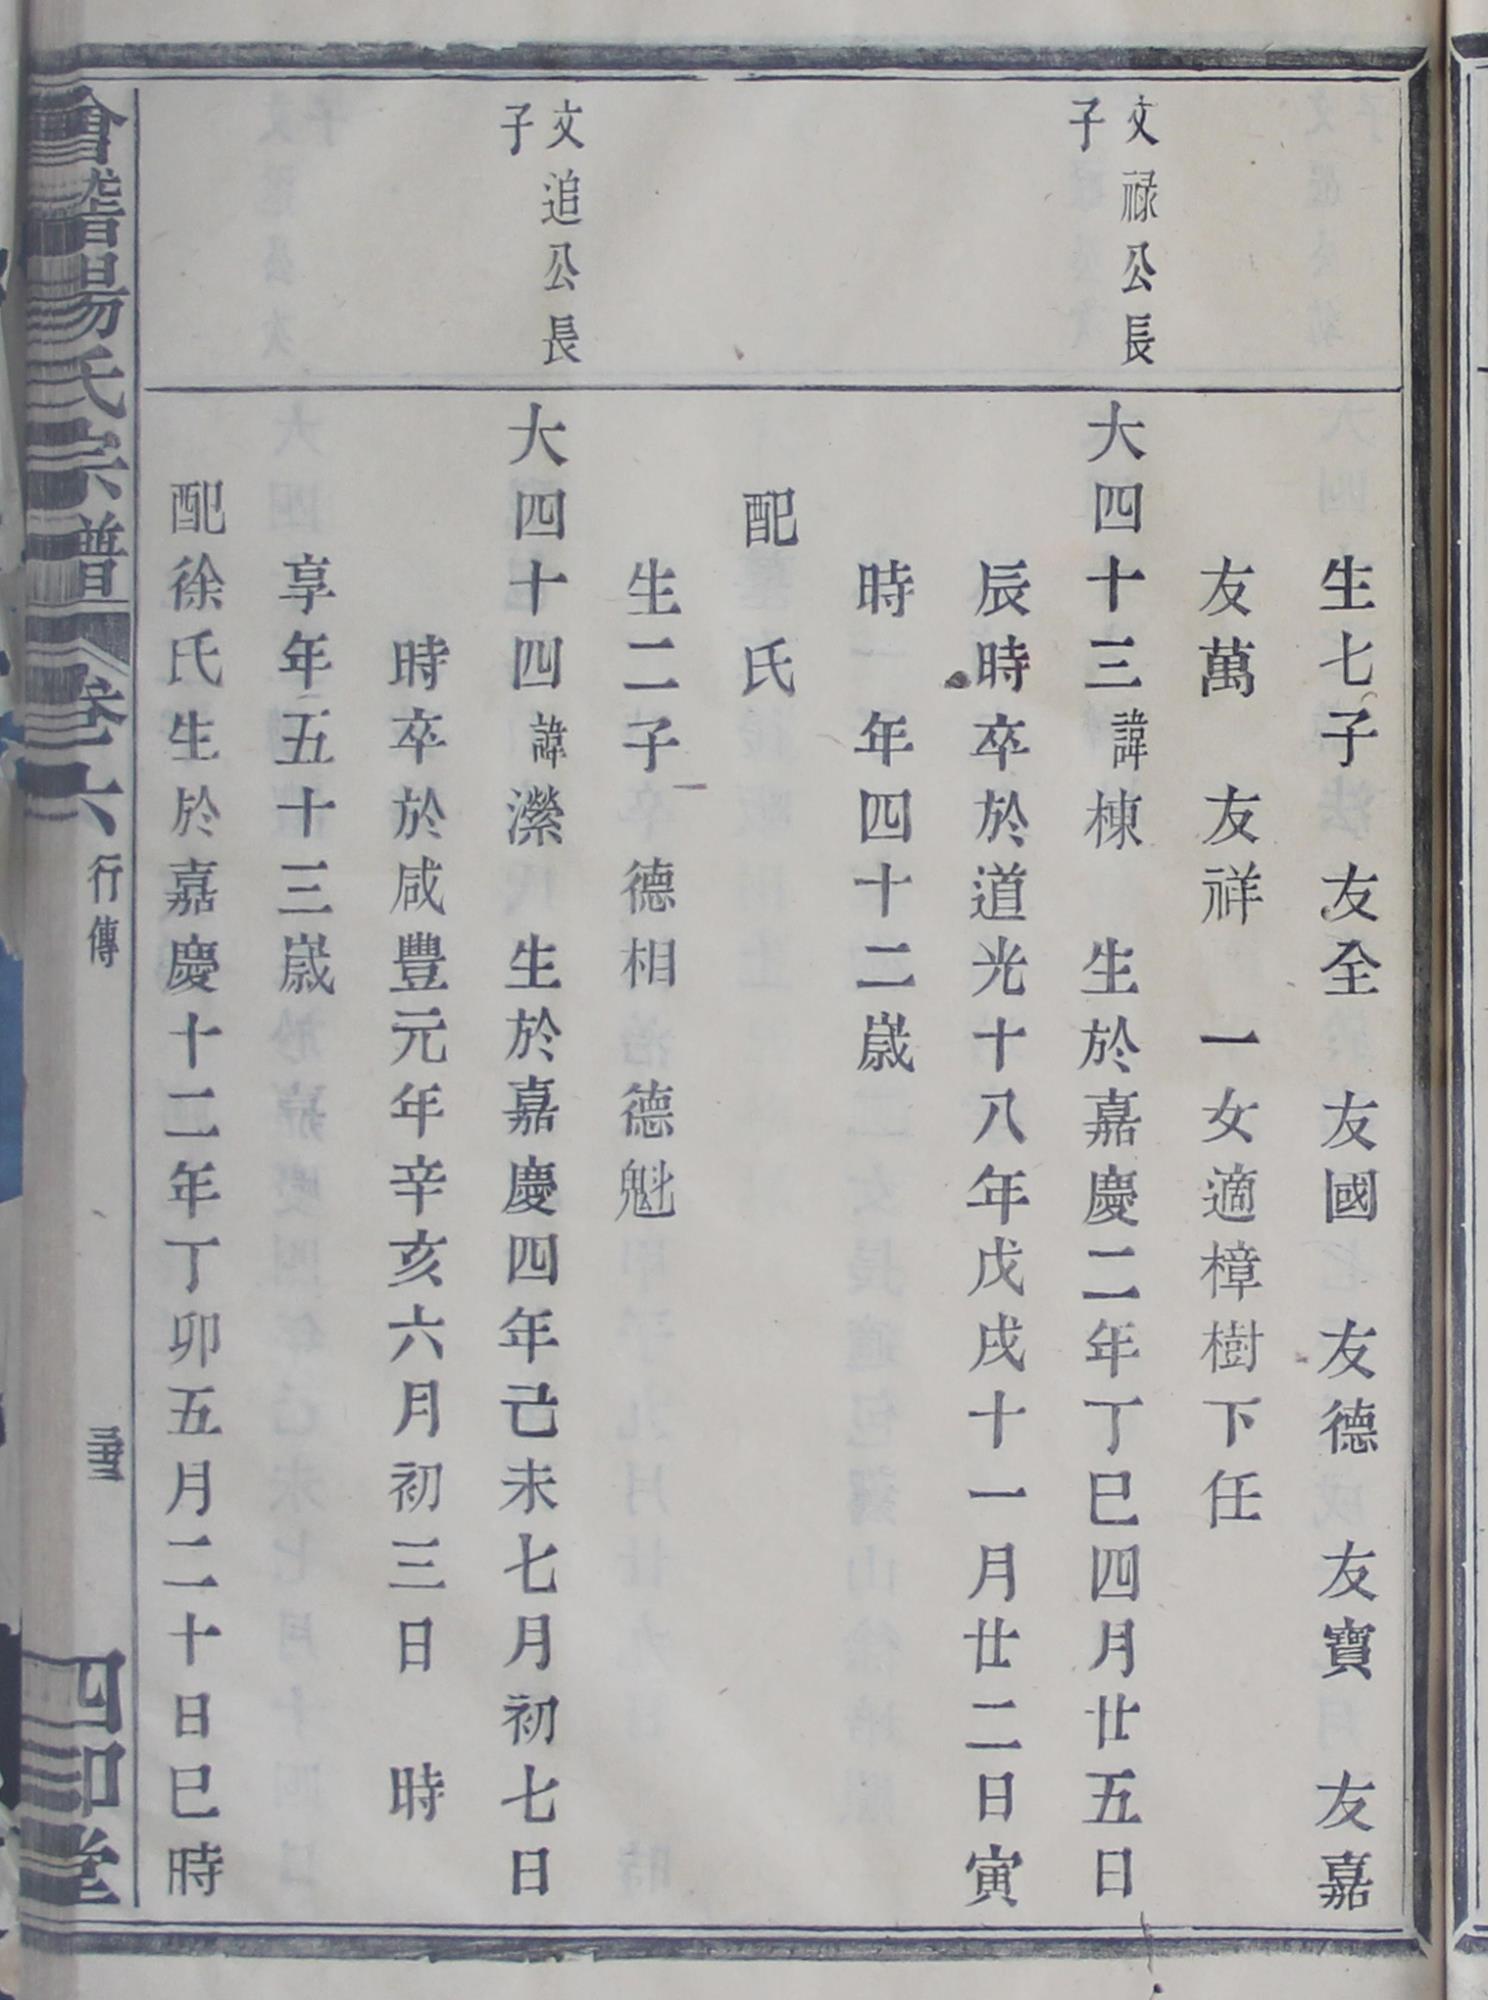 生七子 友全 友國 友德 友寶 友嘉
友萬 友祥 一女適樟樹下任
文祿公長
子
大四十三諱棟 生於嘉慶二年丁巳四月廿五日
辰時卒於道光十八年戊戌十一月廿二日寅
時 年四十二歲
配 氏
生二子 德相 德魁
文追公長
子
大四十四諱濴 生於嘉慶四年己未七月初七日
時卒於咸豐元年辛亥六月初三日 時
享年五十三歲
配徐氏生於嘉慶十二年丁卯五月二十日巳時
會稽楊氏宗譜 卷六 行傳 四知堂